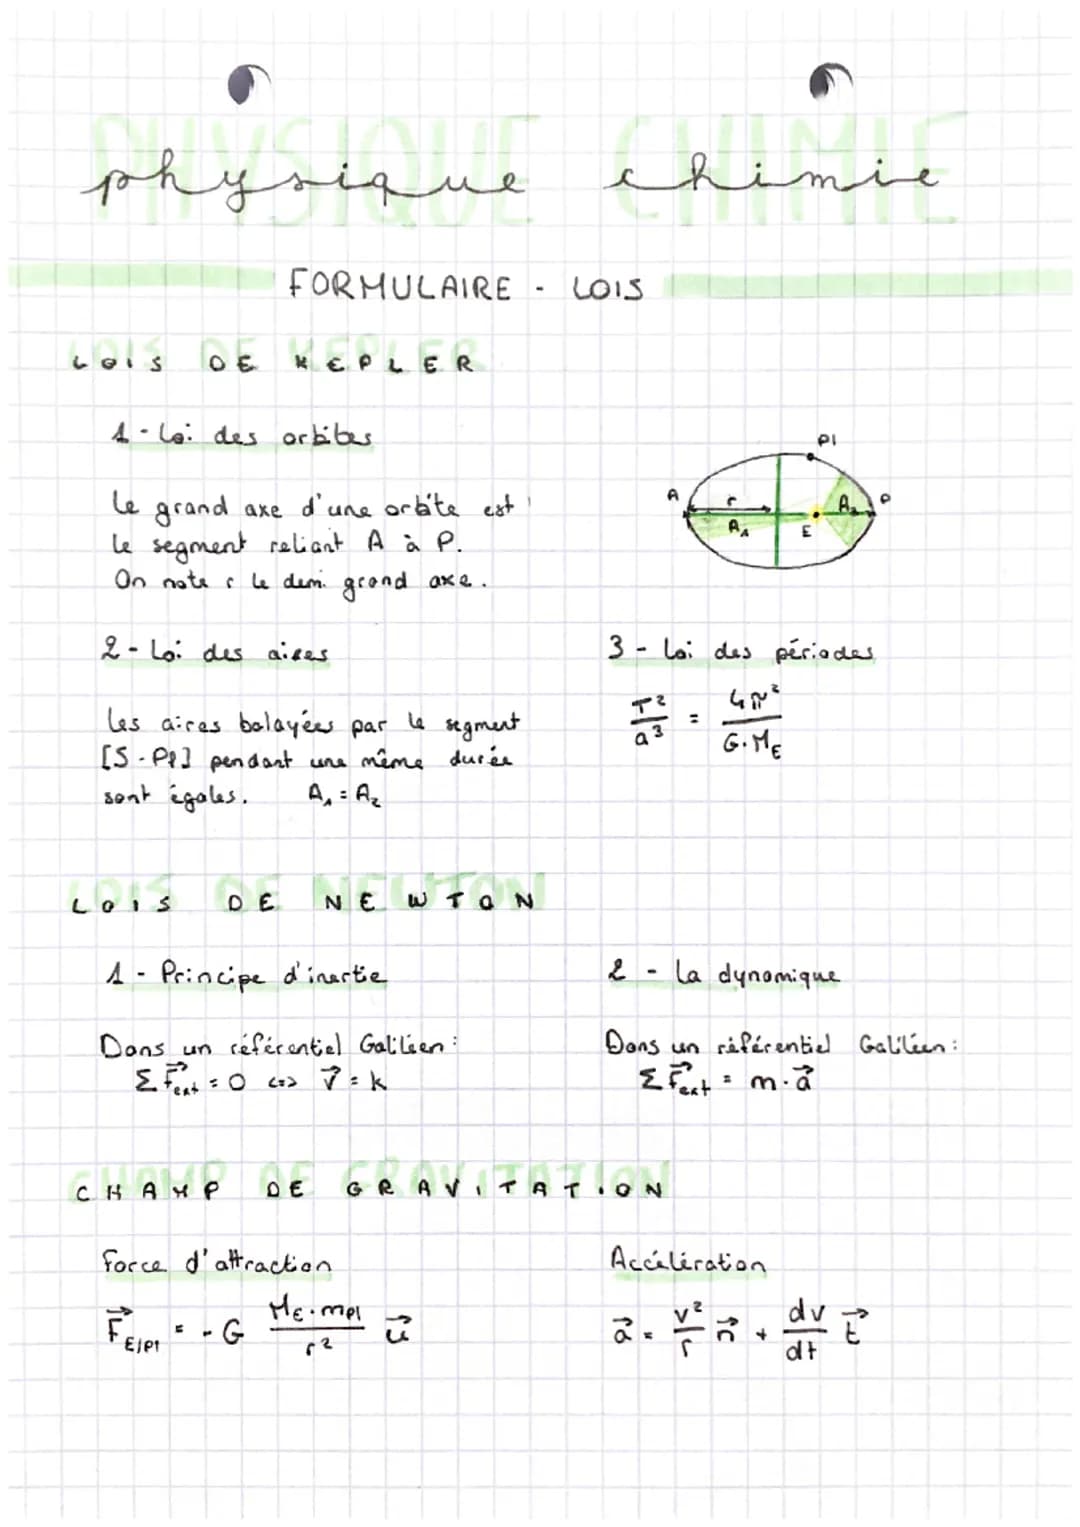 PHYSIQUE CHIMIE
physique chimie
FORMULAIRE - LOIS
LOIS DE KEPLER
1 - Loi des orbites
Le grand axe d'une orbite est
le segment reliant A à P.
On note r le demi grand axe.
Pl
A r A₂ P
A₁ E
2 - Loi des aires
Les aires balayées par le segment
[S - Pl] pendant une même durée
sont égales. A₁ = A₂
3 - Loi des périodes
T²/a³ = 4π²/G.M_E
LOIS DE NEWTON
LOIS DE NEWTON
1 - Principe d'inertie
Dans un référentiel Galiléen :
Σ F⃗ext = 0 <=> v⃗ = k
2 - La dynamique
Dans un référentiel Galiléen :
Σ F⃗ext = m.a⃗
CHAMP DE GRAVITATION
CHAMP DE GRAVITATION
Force d'attraction
F⃗E/Pl = - G M_E.mPl/r² u⃗
Accélération
a⃗ = v²/r n⃗ + dv/dt t⃗